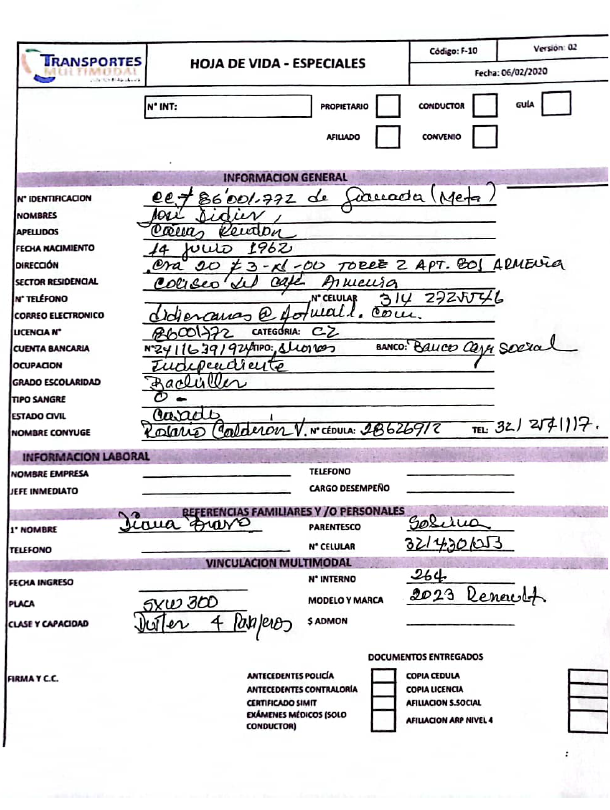 TRANSPORTES
MULTIMODAL
HOJA DE VIDA - ESPECIALES
Código: F-10
Versión: 02
Fecha: 06/02/2020
N° INT:
PROPIETARIO
CONDUCTOR
GUÍA
AFILIADO
CONVENIO
INFORMACION GENERAL
N° IDENTIFICACION CC# 86'001.772 de Granada (Meta)
NOMBRES José Didier
APELLIDOS Cañas Rendon
FECHA NACIMIENTO 14 Junio 1962
DIRECCIÓN Cra 20 # 3-N-00 TORRE 2 APT. 801 ARMENIA
SECTOR RESIDENCIAL Coliseo del café Armenia
N° TELÉFONO N° CELULAR 314
CORREO ELECTRONICO didiercanas@hotmail.com.
LICENCIA N° 86001772 CATEGORÍA: C2
CUENTA BANCARIA N° TIPO: Ahorros BANCO: Banco Caja Social
OCUPACION Independiente
GRADO ESCOLARIDAD Bachiller
TIPO SANGRE O -
ESTADO CIVIL Casado
NOMBRE CONYUGE Rosario Calderon V. N° CÉDULA: 28626912 TEL: 321
INFORMACION LABORAL
NOMBRE EMPRESA TELEFONO
JEFE INMEDIATO CARGO DESEMPEÑO
REFERENCIAS FAMILIARES Y /O PERSONALES
1° NOMBRE Diana Bravo PARENTESCO Sobrina
TELEFONO N° CELULAR
VINCULACION MULTIMODAL
FECHA INGRESO N° INTERNO 264
PLACA SXW 300 MODELO Y MARCA 2023 Renault
CLASE Y CAPACIDAD Duster 4 Pasajeros $ ADMON
DOCUMENTOS ENTREGADOS
FIRMA Y C.C. ANTECEDENTES POLICÍA COPIA CEDULA
ANTECEDENTES CONTRALORÍA COPIA LICENCIA
CERTIFICADO SIMIT AFILIACION S.SOCIAL
EXÁMENES MÉDICOS (SOLO CONDUCTOR) AFILIACION ARP NIVEL 4